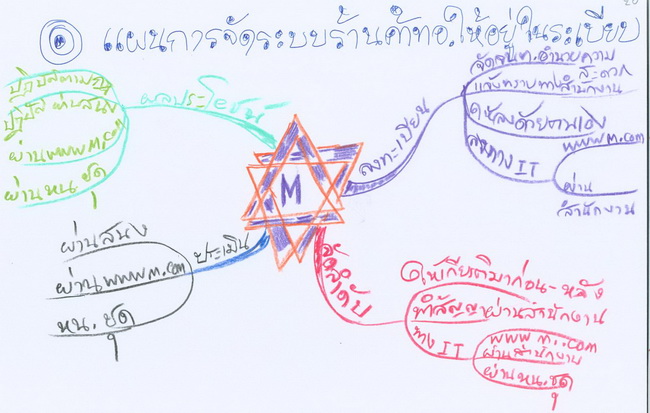 แผนการจัดระบบร้านค้าทอ.ให้อยู่ในระเบียบ
M
ลงทะเบียน
จัดจนท.อำนวยความ
สะดวก
แจ้งทราบทางสำนักงาน
ให้ลงด้วยตนเอง
ลงทาง IT
www.m.com
ผ่าน
สำนักงาน
จัดลำดับ
ให้เกียรติมาก่อน-หลัง
ทำสัญญาผ่านสำนักงาน
ทาง IT
www.m..com
ผ่านสำนักงาน
ผ่านหน.ชุด
ประเมิน
ผ่านสนง
ผ่านwww.m.com
หน.ชุด
ผลประโยชน์
ปฏิบัติตามกฎ
ปฏิบัติ ผ่านสนง
ผ่านwww.m.com
ผ่านหน.ชุด